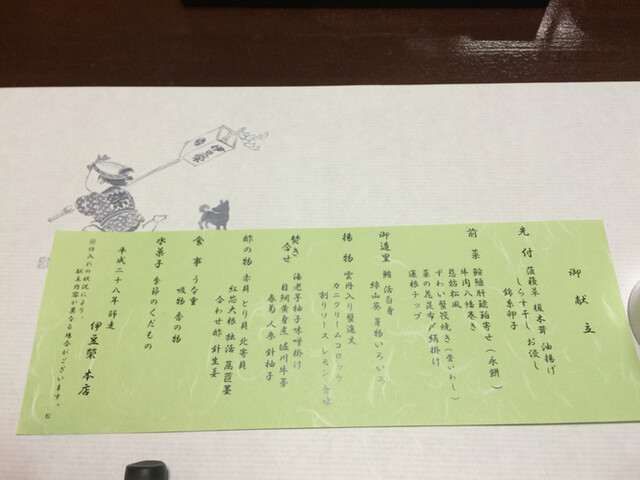 御献立
先付 菠薐草 榎木茸 油揚げ
しらす干し お浸し
錦糸卵子
前菜 鮟鱇肝琥珀寄せ(氷餅)
牛肉八幡巻き
慈姑松風
ずわい蟹
菜の花昆布〆
蓮根チップ
御造里 鮪 活白身
山葵 いろいろ
揚物 雲丹入り蟹進丈
カニクリームコロッケ
割りソース レモン
焚き合せ 海老芋柚子味噌掛け
目鯛黄身煮
春菊 人参 針柚子
酢の物 赤貝 とり貝 北寄貝
紅芯大根 独活 萵苣薹
合わせ酢 針生姜
食事 うな重
吸物 香の物
水菓子 季節のくだもの
平成二十八年 師走
伊豆榮 本店
※仕入れの状況により、
献立内容が異なる場合がございます。